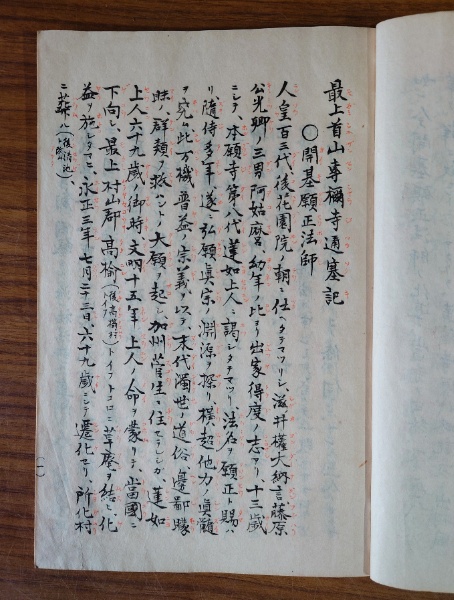 最上首山専称寺通塞記
〇開基願正法師
人皇百三代後花園院ノ朝ニ仕ヘタテマツリシ滋井権大納言藤原
公光卿ノ三男阿姑麿幼年ノ比ヨリ出家得度ノ志アリ、十三歳
ニシテ、本願寺第八代蓮如上人ニ謁シタテマツリ法名ヲ願正ト賜ハ
リ、随侍多年遂ニ弘願真宗ノ淵源ヲ探リ横超他力ノ真髄
ヲ究ム此万機普益ノ宗義ヲ以テ、末代濁世ノ道俗邊鄙曚
昧ノ群類ヲ救ハントノ大願ヲ起シ、加州菅生ニ住セラレシガ、蓮如
上人六十九歳ノ御時文明十五年上人ノ命ヲ蒙リテ、當國ニ
下向シ、最上村山郡高楡（後高擶村）トイフトコロニ草庵ヲ結ヒ化
益ヲ施シタマヒ、永正三年七月二十三日、六十九歳ニシテ遷化セリ、所化村
ニ葬ル（後清池ト改ム）
（一）